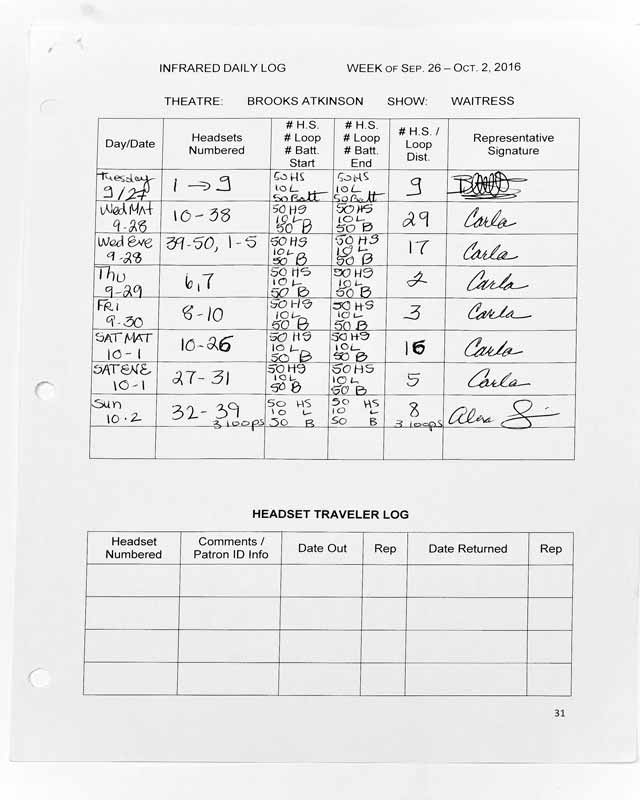 INFRARED DAILY LOG WEEK OF SEP. 26 – OCT. 2, 2016
THEATRE: BROOKS ATKINSON SHOW: WAITRESS
Day/Date Headsets Numbered # H.S. # Loop # Batt. Start # H.S. # Loop # Batt. End # H.S. / Loop Dist. Representative Signature
Tuesday 9/27 1 → 9 50 HS 10 L 50 Batt 50 HS 10 L 50 Batt 9
Wed MAT 9-28 10-38 50 HS 10 L 50 B 50 HS 10 L 50 B 29 Carla
Wed Eve 9-28 39-50, 1-5 50 HS 10 L 50 B 50 HS 10 L 50 B 17 Carla
Thu 9-29 6,7 50 HS 10 L 50 B 50 HS 10 L 50 B 2 Carla
FRI 9-30 8-10 50 HS 10 L 50 B 50 HS 10 L 50 B 3 Carla
SAT MAT 10-1 10-26 50 HS 10 L 50 B 50 HS 10 L 50 B 16 Carla
SAT EVE 10-1 27-31 50 HS 10 L 50 B 50 HS 10 L 50 B 5 Carla
Sun 10.2 32-39 3 loops 50 HS 10 L 50 B 50 HS 10 L 50 B 8 3 loops
HEADSET TRAVELER LOG
Headset Numbered Comments / Patron ID Info Date Out Rep Date Returned Rep
31